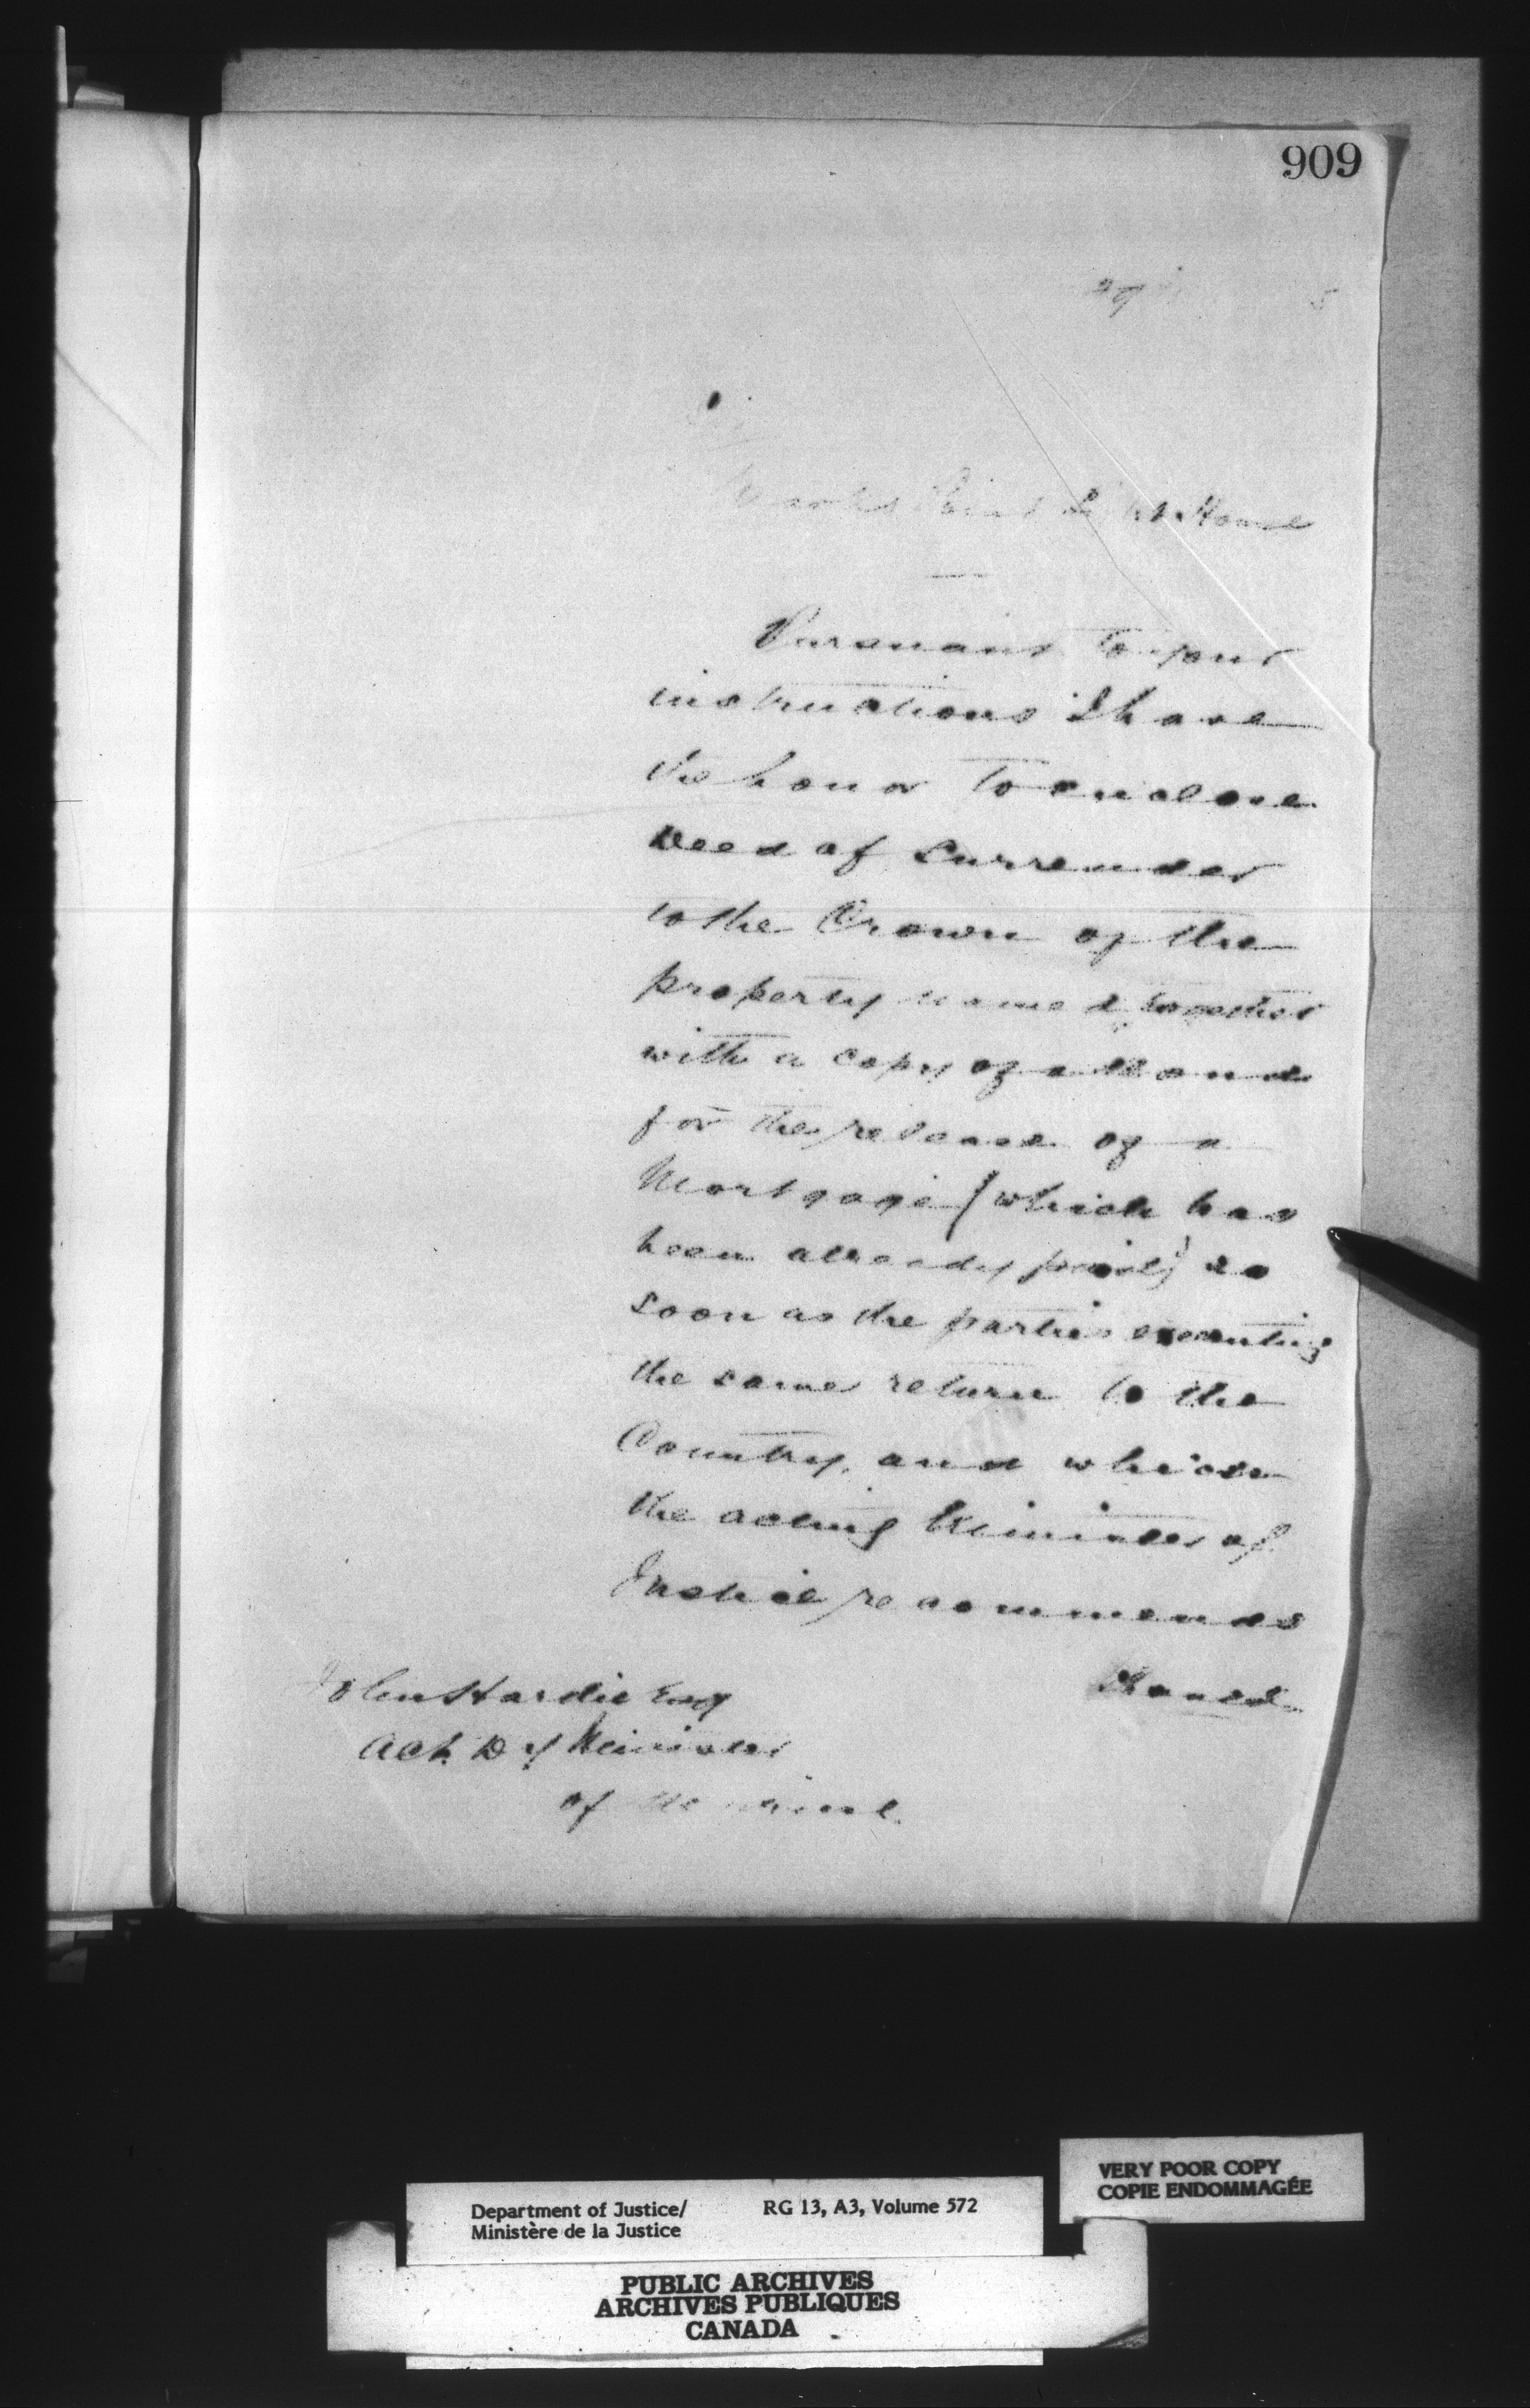 909
29 5
Light House
Pursuant to your
instructions I have
the honor to enclose
Deed of Surrender
to the Crown of the
property named together
with a copy of a Bond
for the release of a
Mortgage (which has
been already paid) as
soon as the parties executing
the same return to the
Country, and which
the acting Minister of
Justice recommends
should
John Hardie Esq
Act. Dy Minister
of Marine.
VERY POOR COPY
COPIE ENDOMMAGÉE
Department of Justice/ RG 13, A3, Volume 572
Ministère de la Justice
PUBLIC ARCHIVES
ARCHIVES PUBLIQUES
CANADA